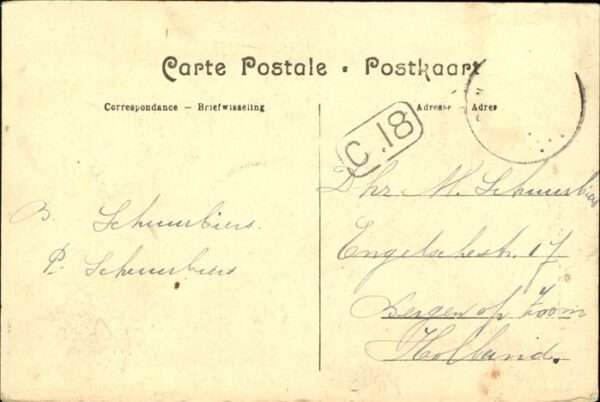 Carte Postale • Postkaart
Correspondance — Briefwisseling
Adresse — Adres
C.18
B. Schuurbiers.
P. Schuurbiers
Dhr. M. Schuurbiers
Engelschestr. 17
Bergen op Zoom
Holland.